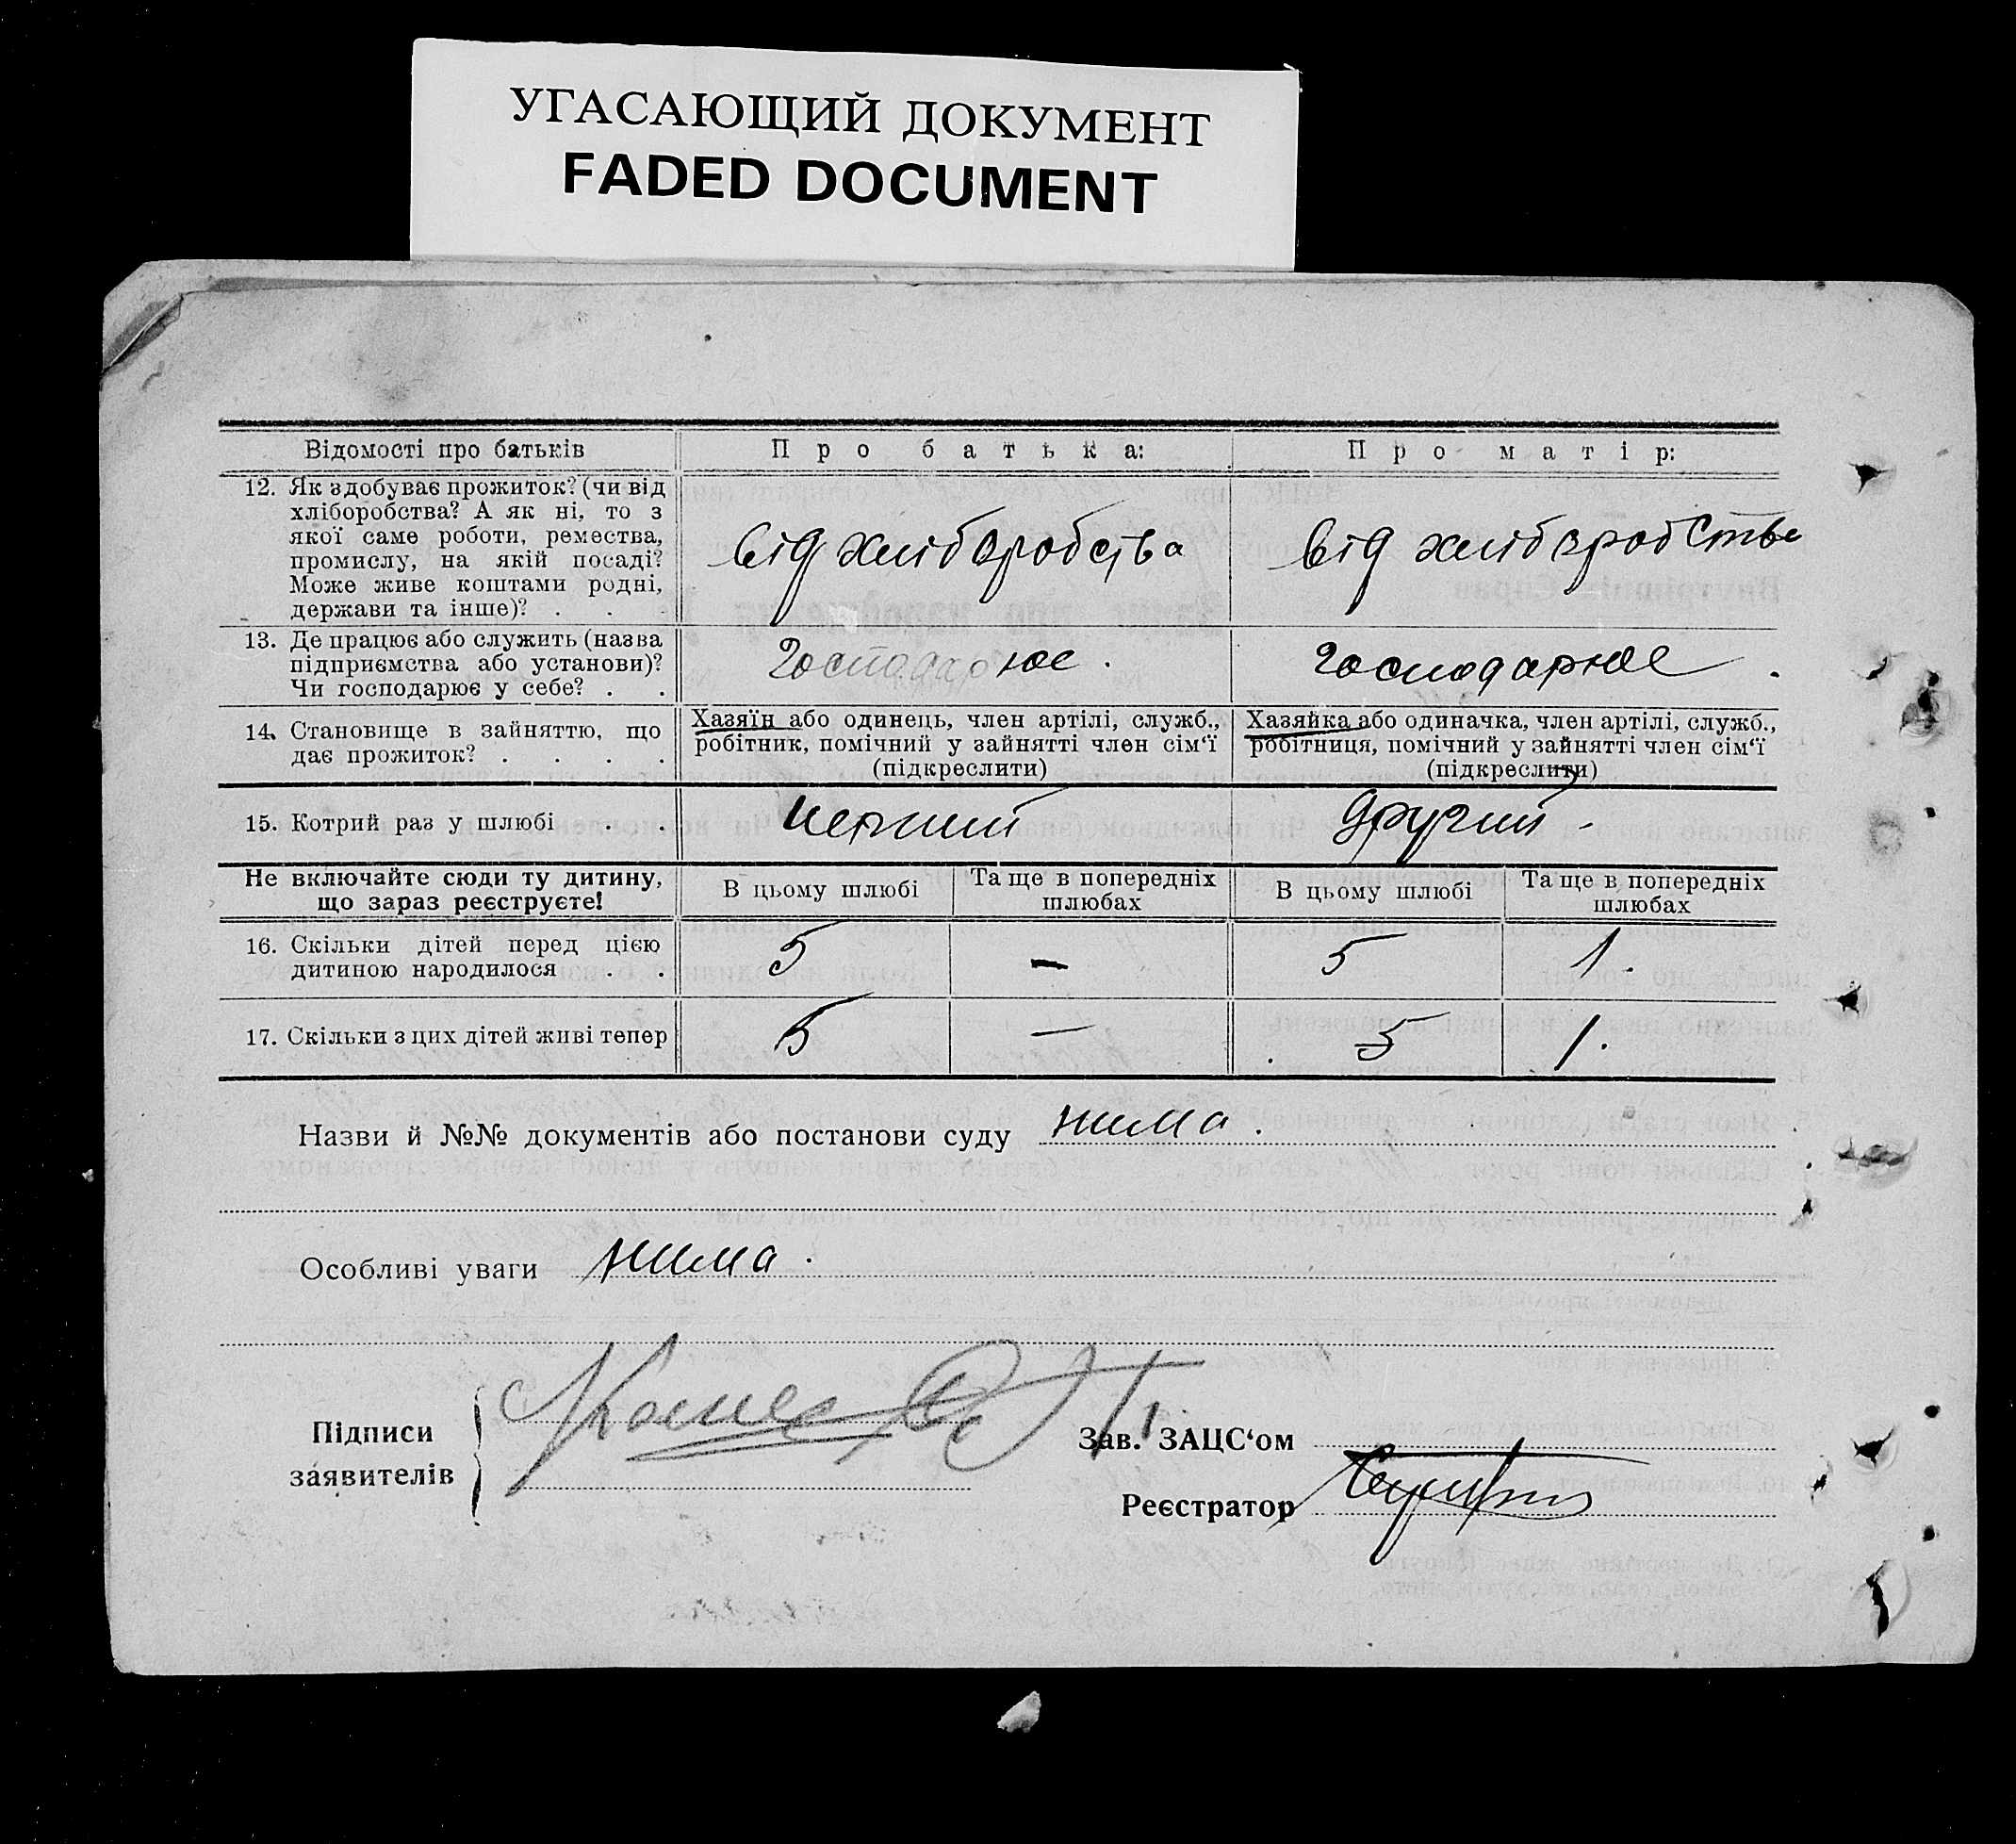 УГАСАЮЩИЙ ДОКУМЕНТ
FADED DOCUMENT
Відомості про батьків
Про батька:
Про матір:
12. Як здобуває прожиток? (чи від
хліборобства? А як ні, то з
якої саме роботи, ремества,
промислу, на якій посаді?
Може живе коштами родні,
держави та інше)? . . .
від хліборобства
від хліборобства
13. Де працює або служить (назва
підприємства або установи)?
Чи господарює у себе? . .
господарює .
господарює .
14. Становище в зайняттю, що
дає прожиток? . . . .
Хазяїн або одинець, член артілі, служб.,
робітник, помічний у зайнятті член сім'ї
(підкреслити)
Хазяйка або одиначка, член артілі, служб.,
робітниця, помічний у зайнятті член сім'ї
(підкреслити)
15. Котрий раз у шлюбі . .
перший
другий -
Не включайте сюди ту дитину,
що зараз реєструєте!
В цьому шлюбі
Та ще в попередніх
шлюбах
В цьому шлюбі
Та ще в попередніх
шлюбах
16. Скільки дітей перед цією
дитиною народилося . .
5
—
5
1.
17. Скільки з цих дітей живі тепер
5
—
5
1.
Назви й №№ документів або постанови суду нима .
Особливі уваги нима .
Підписи
заявителів
Зав. ЗАЦС'ом
Реєстратор